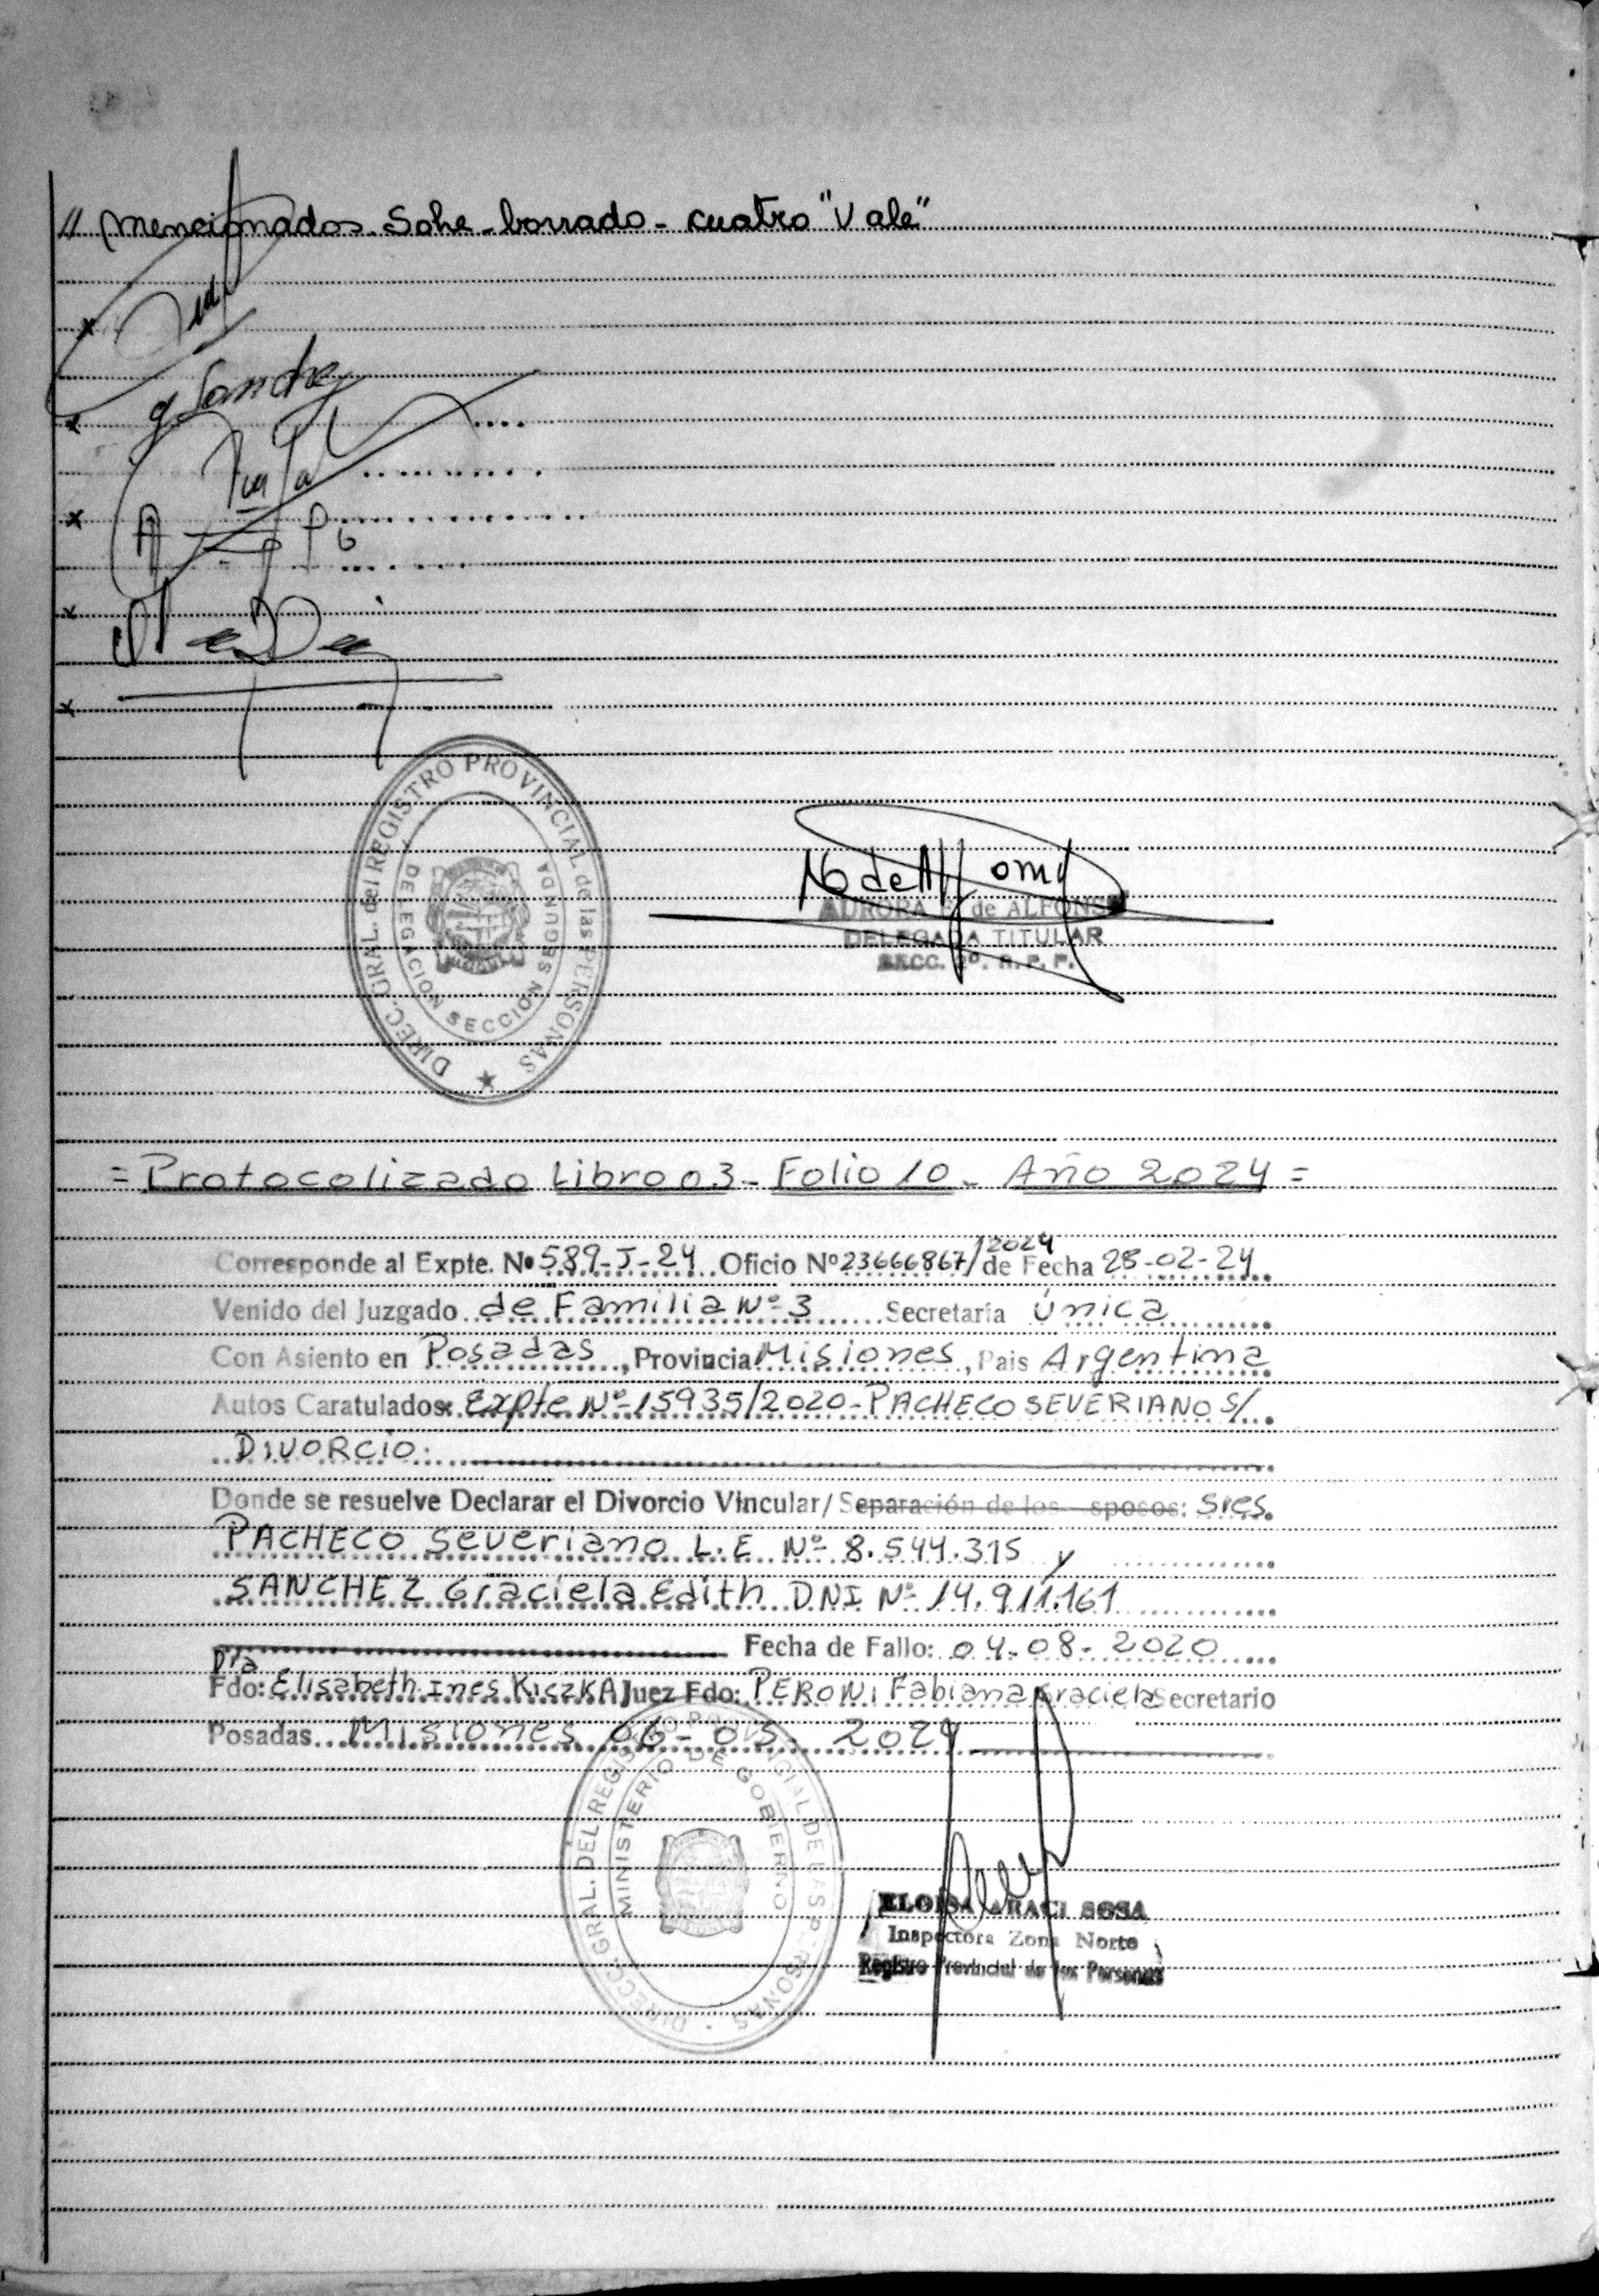 // mencionados. Sobre-borrado-cuatro "Vale"
g Sanchez
DIREC. GRAL. del REGISTRO PROVINCIAL de las PERSONAS
DELEGACION SECCION SEGUNDA
AURORA de ALFONSO
DELEGADA TITULAR
SECC. 2º. R. P. P.
=Protocolizado Libro 03-Folio 10- Año 2024=
Corresponde al Expte. Nº 589-J-24 Oficio Nº 23666867/2024 de Fecha 28-02-24
Venido del Juzgado de Familia Nº 3 Secretaría Única
Con Asiento en Posadas, Provincia Misiones, Pais Argentina
Autos Caratulados: Expte Nº 15935/2020-PACHECO SEVERIANO S/
DIVORCIO.
Donde se resuelve Declarar el Divorcio Vincular/ Separación de los sposos: Sres.
PACHECO Severiano L.E Nº 8.544.315 y
SANCHEZ Graciela Edith DNI Nº 14.911.161
Fecha de Fallo: 04-08-2020
Dra
Fdo: Elisabeth Ines KiczKA Juez Fdo: PERONI Fabiana Graciela Secretario
Posadas Misiones 06-05-2024
DIREC. GRAL. DEL REGISTRO PROVINCIAL DE LAS PERSONAS
MINISTERIO DE GOBIERNO
ELOISA ARACI SOSA
Inspectora Zona Norte
Registro Provincial de las Personas